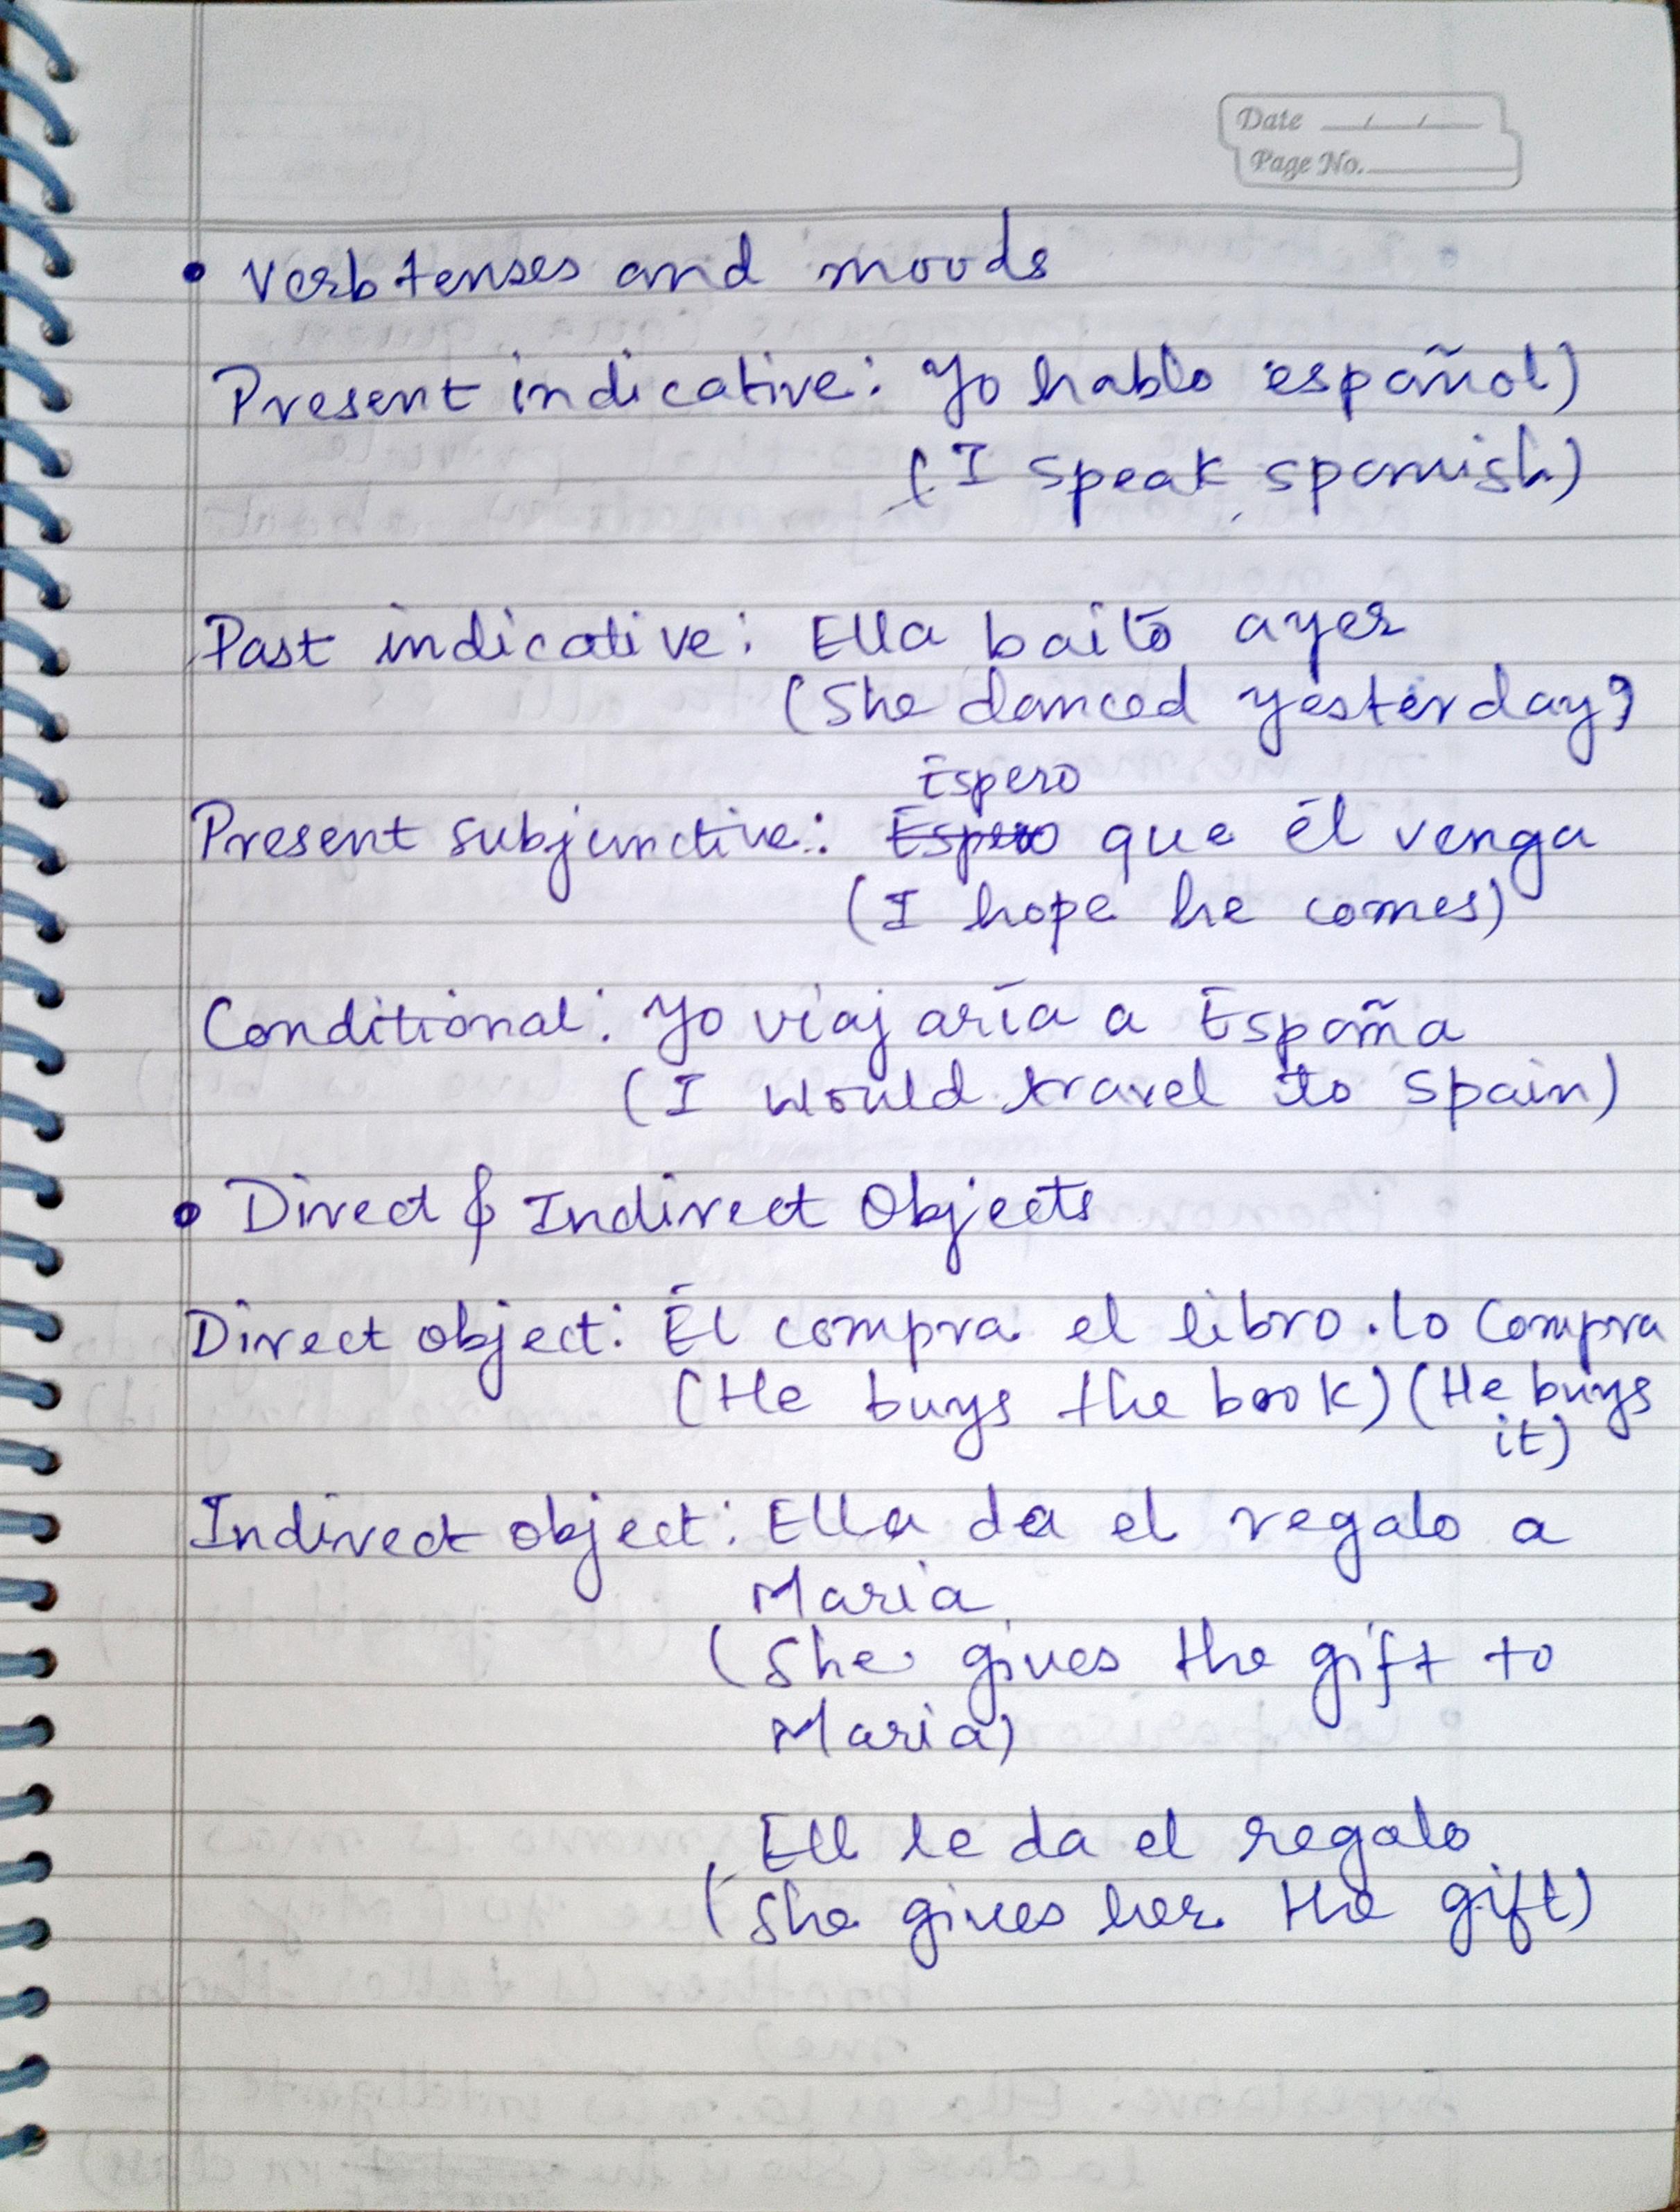 Date __/__/__
Page No. ____
• Verb tenses and moods
Present indicative: Yo hablo español)
(I speak spanish)
Past indicative: Ella bailó ayer
(She danced yesterday)
Espero
Present subjunctive: Espero que él venga
(I hope he comes)
Conditional: Yo viajaría a España
(I would travel to Spain)
• Direct & Indirect Objects
Direct object: Él compra el libro. lo Compra
(He buys the book) (He buys
it)
Indirect object: Ella da el regalo a
Maria
(She gives the gift to
Maria)
Ell le da el regalo
(She gives her the gift)